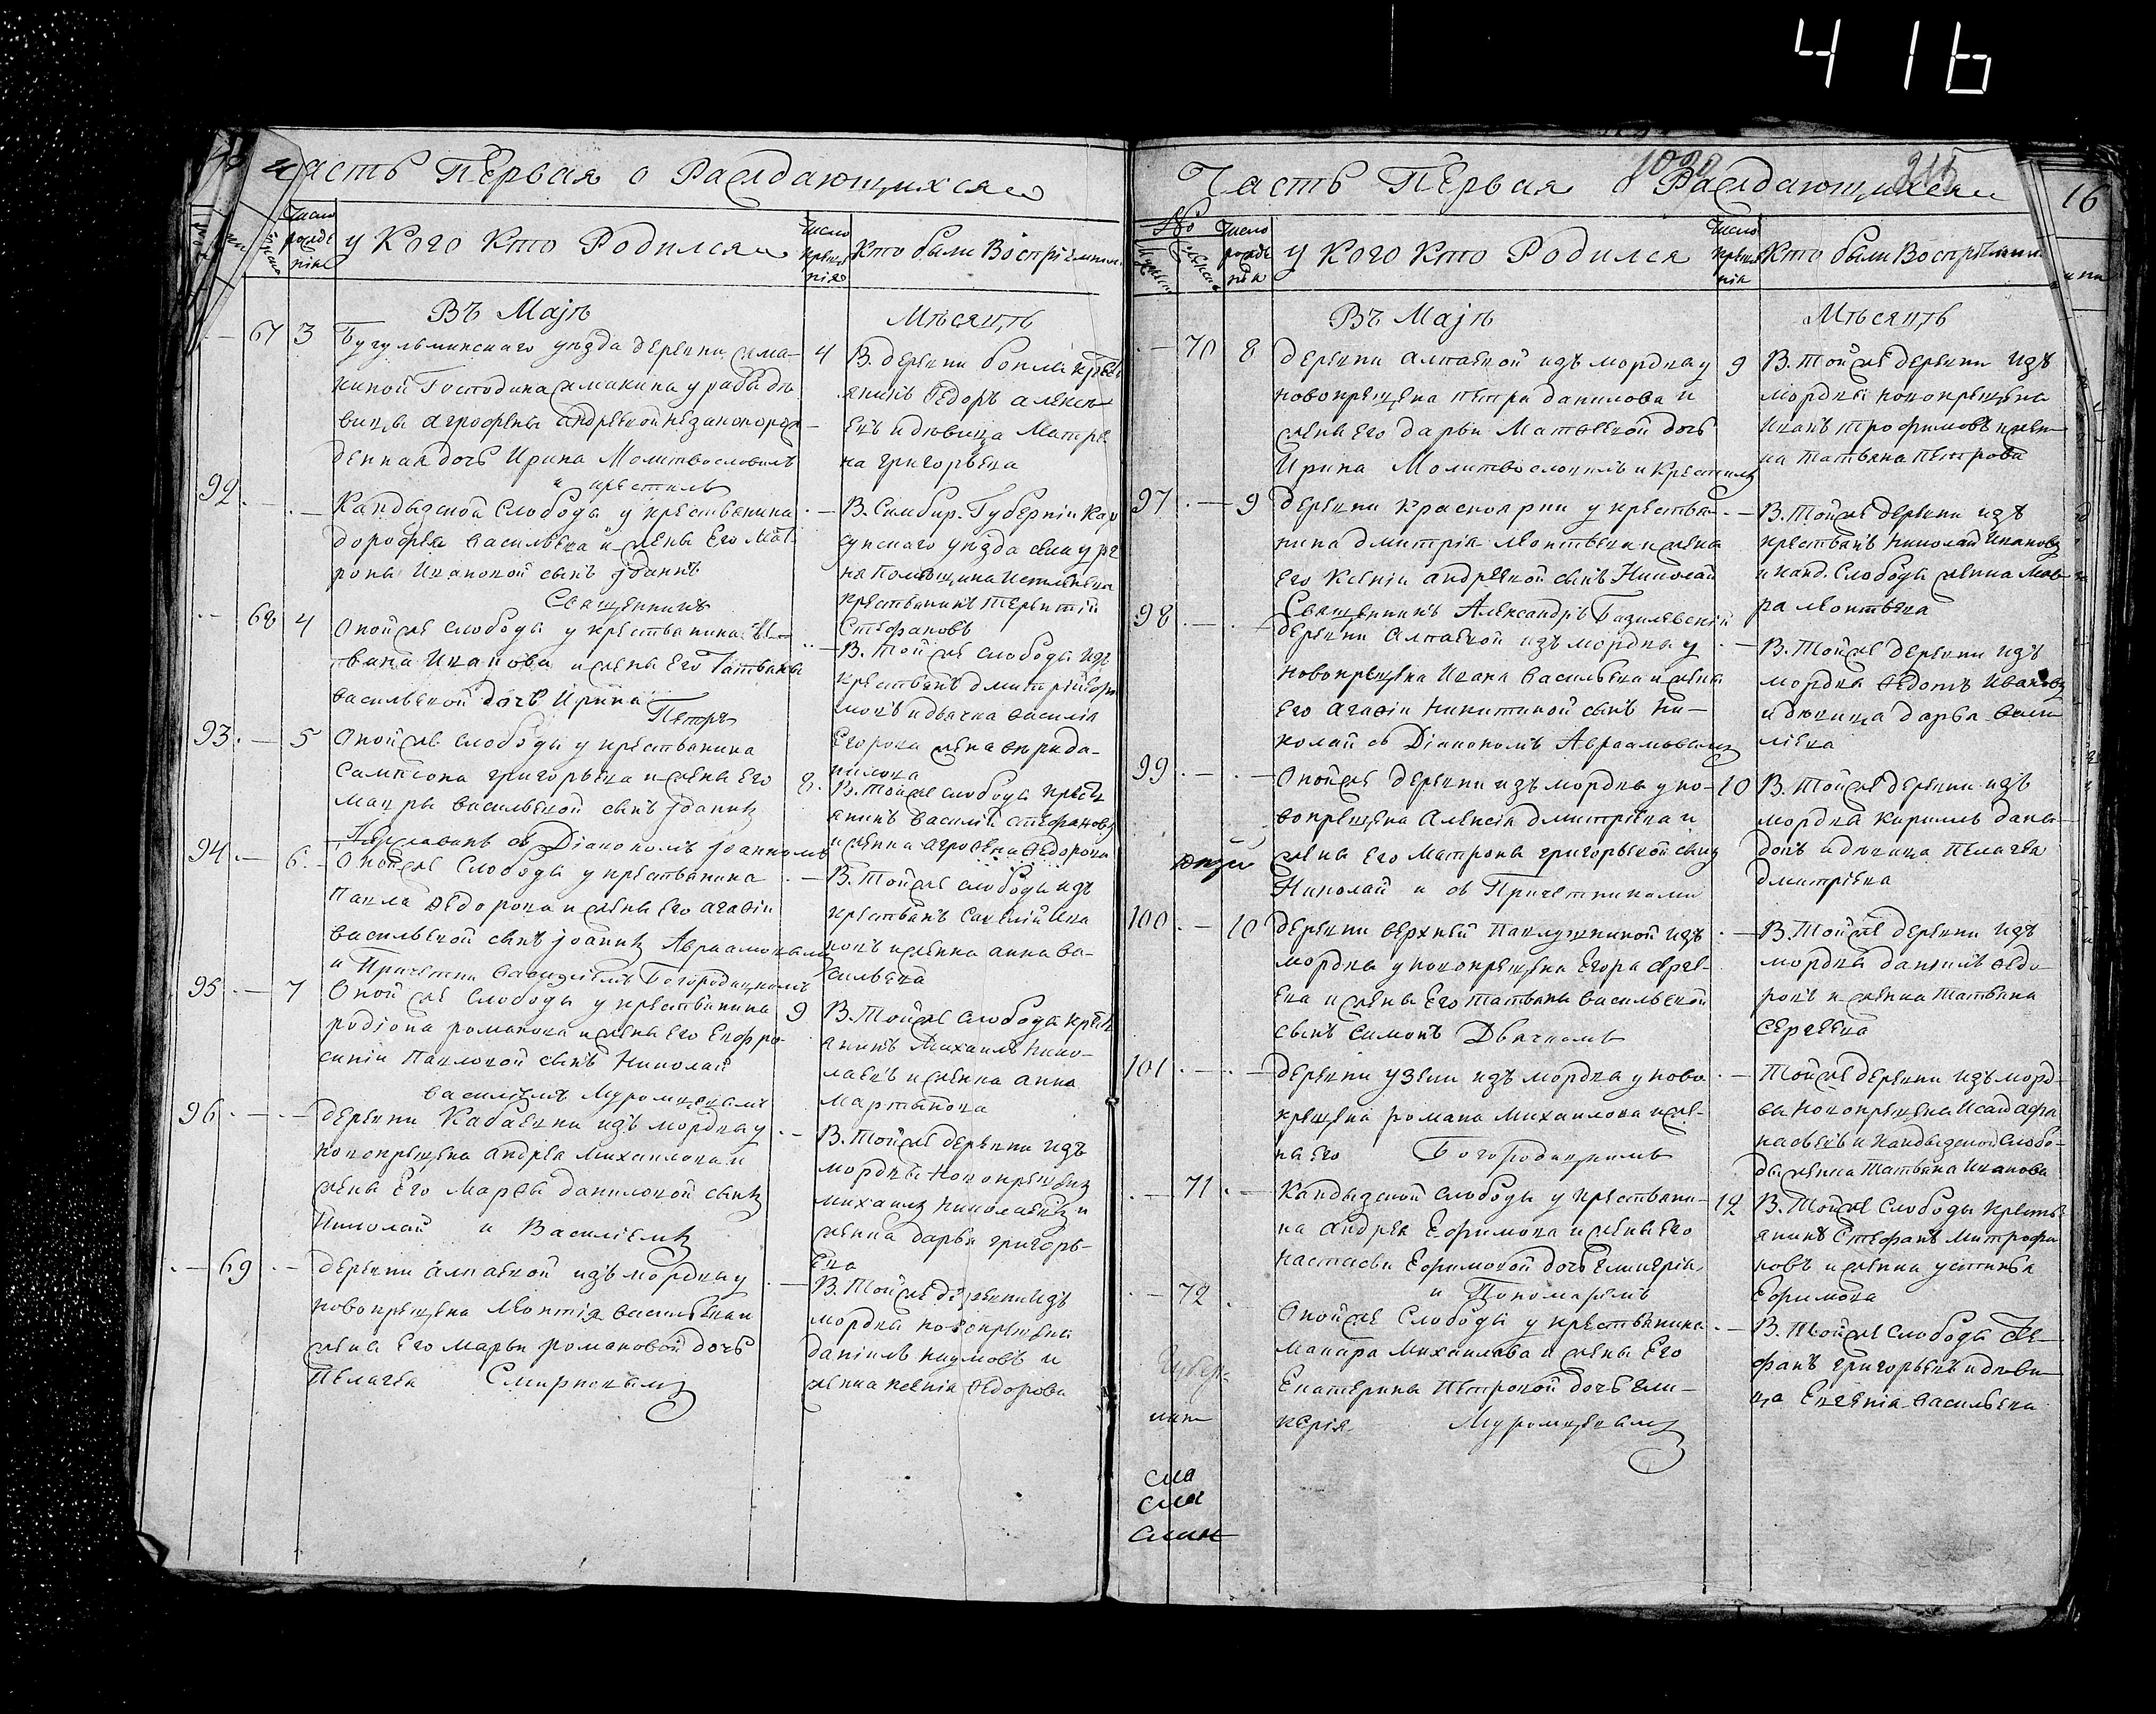 416
Часть Первая о Раждающихся
Число рожденія
у Кого Кто Родился
Число крещенія
Кто были Воспріемники
Въ Маіѣ
Мѣсяцѣ
67 3
Бугульминскаго уѣзда деревни
киной Господина у рабы дѣ-
вицы Агрофены Андреевой незаконорож-
денная дочь Ирина Молитвословилъ
и крестилъ
4
В. деревни кресть-
янинъ Ѳедоръ Алексе-
евъ и дѣвица Матре-
на Григорьева
92
Кандызской Слободы у крестьянина
Дорофея Васильева и жены Его Мат-
роны Ивановой сынъ Іоаннъ
Священникъ
В. Симбир. Губерніи Кар-
сунскаго уѣзда села
крестьянинъ Терентій
Стефановъ
68 4
Оной же слободы у крестьянина
Ивана Иванова и жены Его Татьяны
Васильевой дочь Ирина
Петръ
В. Той же слободы изъ
крестьянъ Дмитрій
и дьячка Василія
Егорова жена
93 5
Оной же слободы у крестьянина
Сампсона Григорьева и жены Его
Мавры Васильевой сынъ Іоаннъ
съ Діакономъ Іоанномъ
8
В. Той же слободы кресть-
янинъ Василій Стефановъ
и женка Агрофена Ѳедорова
94 6
Оной же Слободы у крестьянина
Павла Ѳедорова и жены Его Агафіи
Васильевой сынъ Іоаннъ Авраамовымъ
и Причетни Василіемъ Богородицкимъ
В. Той же слободы изъ
крестьянъ Савелій Ива-
новъ и женка Анна Ва-
сильева
95 7
Оной же Слободы у крестьянина
Родіона Романова и жены Его Евфро-
синіи Павловой сынъ Николай
Василіемъ Муромцевымъ
9
В. Той же слободы кресть-
янинъ Михаилъ Нико-
лаевъ и женка Анна
Мартынова
96
деревни Кабаевки изъ мордвы у
новокрещена Андрея Михаилова и
жены Его Марфы Даниловой сынъ
Николай и Василіемъ
В. Той же деревни изъ
мордвы новокрещенъ
Михаилъ Николаевъ и
женка Дарья Григорь-
ева
69
деревни Алпаевой изъ мордвы у
новокрещена Леонтія Васильева и
жены Его Марьи Романовой дочь
Пелагея Смирновымъ
В. Той же деревни изъ
мордвы новокрещены
Даніилъ Наумовъ и
женка Ксенія Ѳедорова
Часть Первая о Раждающихся
1030
215
16
№
Число рожденія
у Кого Кто Родился
Число крещенія
Кто были Воспріемники
Въ Маіѣ
Мѣсяцѣ
70 8
деревни Алпаевой изъ мордвы у
новокрещена Петра Данилова и
жены Его Дарьи Матвеевой дочь
Ирина Молитвословилъ и Крестилъ
9
В. Той же деревни изъ
мордвы новокрещены
Иванъ Трофимовъ и жен-
ка Татьяна Петрова
97 9
деревни Красноярки у крестья-
нина Дмитрія Леонтьева и жены
Его Ксеніи Андреевой сынъ Николай
Священникъ Александръ Базилевскій
В. Той же деревни изъ
крестьянъ Николай Ивановъ
и Канд. Слободы женка Мав-
ра Леонтьева
98
деревни Алпаевой изъ мордвы у
новокрещена Ивана Васильева и жены
Его Агафіи Никитиной сынъ Ни-
колай съ Діакономъ Авраамовымъ
В. Той же деревни изъ
мордвы Ѳедотъ Ивановъ
и дѣвица Дарья Васи-
льева
99
Оной же деревни изъ мордвы у но-
вокрещена Алексія Дмитріева и
жены Его Матроны Григорьевой сынъ
Николай и съ Причетниками
10
В. Той же деревни изъ
мордвы Кирилъ Давы-
довъ и дѣвица Пелагея
Дмитріева
100 10
деревни Верхней Павлушкиной изъ
мордвы у новокрещена Егора
ева и жены Его Татьяны Васильевой
сынъ Симонъ Дьячкомъ
В. Той же деревни изъ
мордвы Даніилъ Ѳедо-
ровъ и женка Татьяна
Сергеева
101
деревни Узели изъ мордвы у ново-
крещена Романа Михаилова и же-
ны Его Богородицкимъ
Той же деревни изъ морд-
ва новокрещены Исай Афа-
насьевъ и Кандызской слобо-
ды женка Татьяна Иванова
71
Кандызской слободы у крестьяни-
на Андрея Ефимова и жены Его
Настасьи Ефимовой дочь Гликерія
и Пономаремъ
12
В. Той же Слободы кресть-
янинъ Стефанъ Митрофа-
новъ и женка Устинья
Ефимова
72
Оной же Слободы у крестьянина
Макара Михаилова и жены Его
Екатерины Петровой дочь Гли-
керія Муромцевымъ
В. Той же слободы Сте-
фанъ Григорьевъ и дѣви-
ца Евгенія Васильева
сла
сла